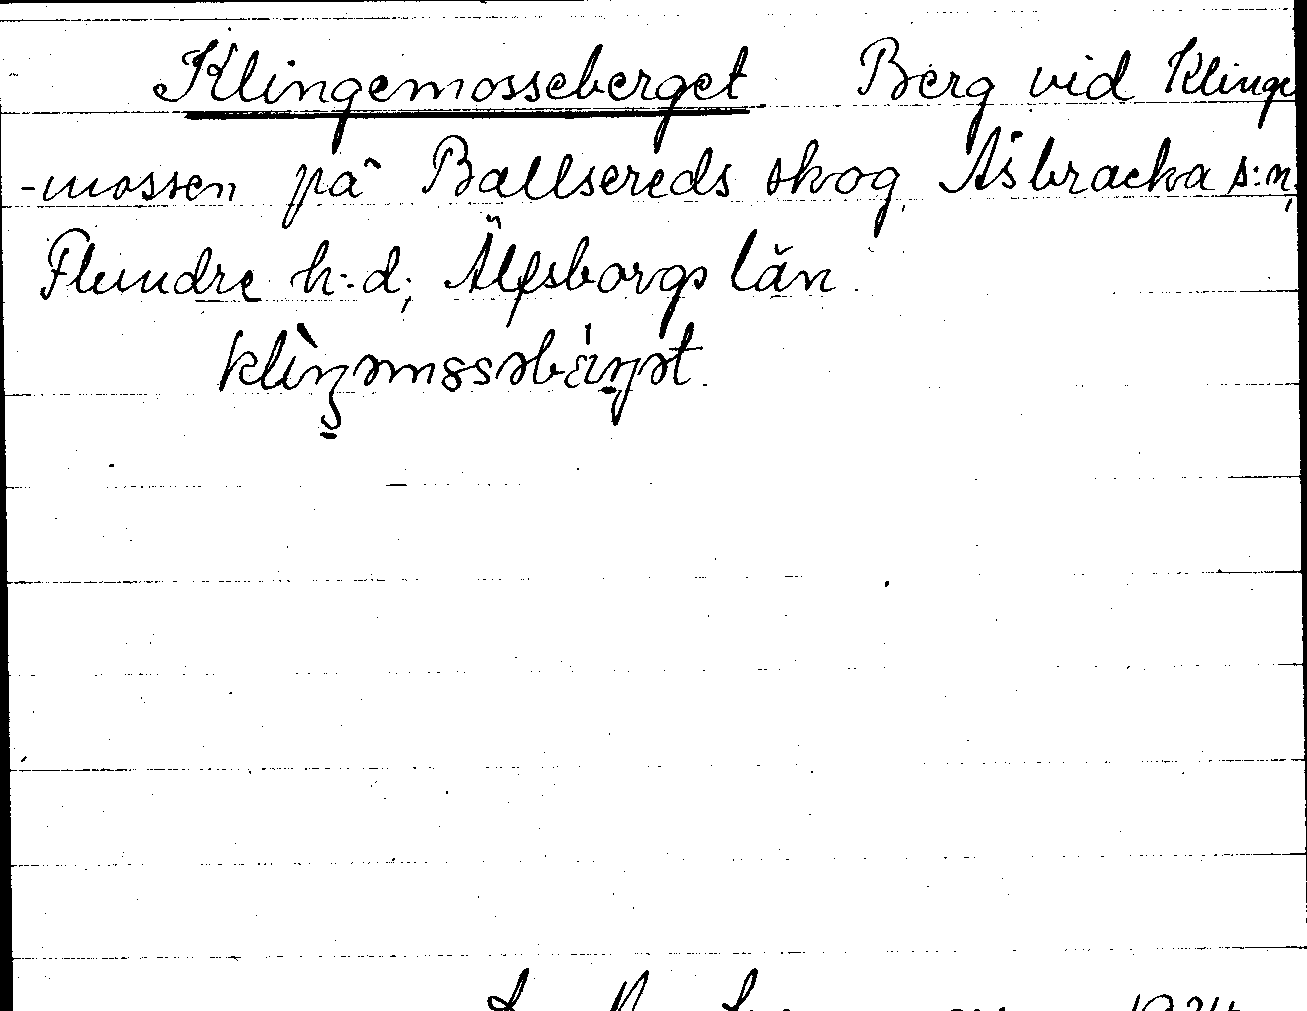 Klingemosseberget Berg vid Klinge
-mossen på Ballsereds skog, Åsbracka s:n,
Flundre h:d; Älfsborgs län